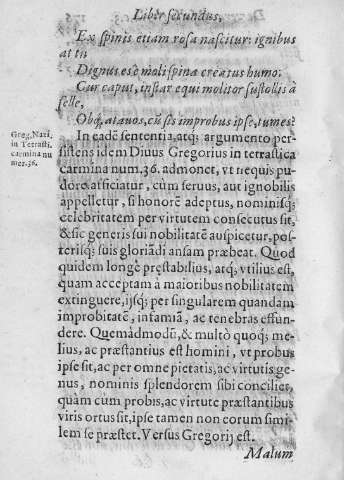 Liber secundus,
Ex spinis etiam rosa nascitur: ignibus
at tu
Dignus es è moli spina creatus humo:
Cur caput, instar equi molitor sustollis à
selle,
Obq́; atauos, cũ sis improbus ipse, tumes?
Greg. Nazi,
in Tetrasti.
carmina nu
mer. 36.
In eadē sententia, atq́; argumento per-
sistens idem Diuus Gregorius in tetrastica
carmina num. 36. admonet, vt nequis pu-
dore afficiatur, cùm seruus, aut ignobilis
appelletur, si honorē adeptus, nominisq́;
celebritatem per virtutem consecutus sit,
& sic generis sui nobilitatē auspicetur, pos-
terisq́; suis gloriādi ansam præbeat. Quod
quidem longè pręstabilius, atq́; vtilius est,
quam acceptam à maioribus nobilitatem
extinguere, ijsq́; per singularem quandam
improbitatē, infamiā, ac tenebras effun-
dere. Quemàdmodũ, & multò quoq́; me-
lius, ac præstantius est homini, vt probus
ipse sit, ac per omne pietatis, ac virtutis ge-
nus, nominis splendorem sibi conciliet,
quàm cùm probis, ac virtute præstantibus
viris ortus sit, ipse tamen non eorum simi-
lem se præstet. Versus Gregorij est.
Malum